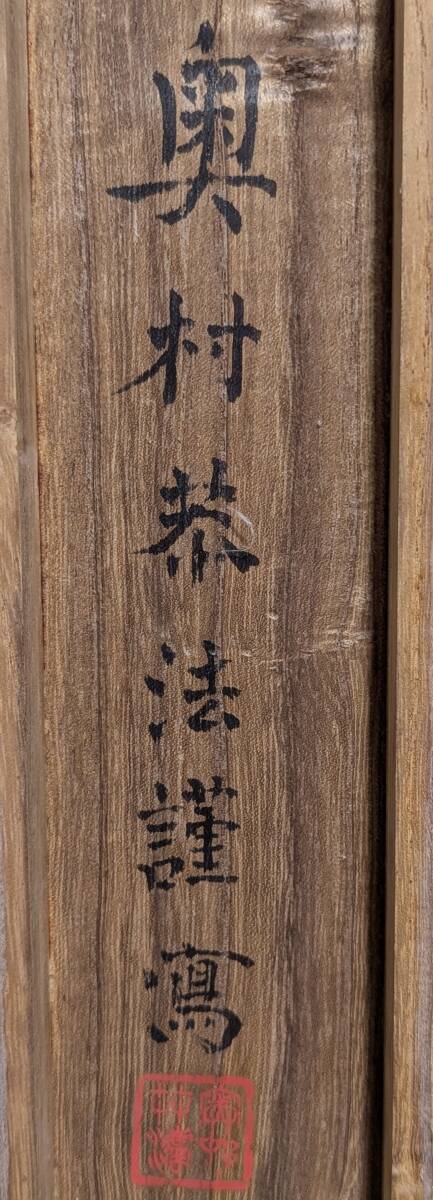 奥村恭法謹寫